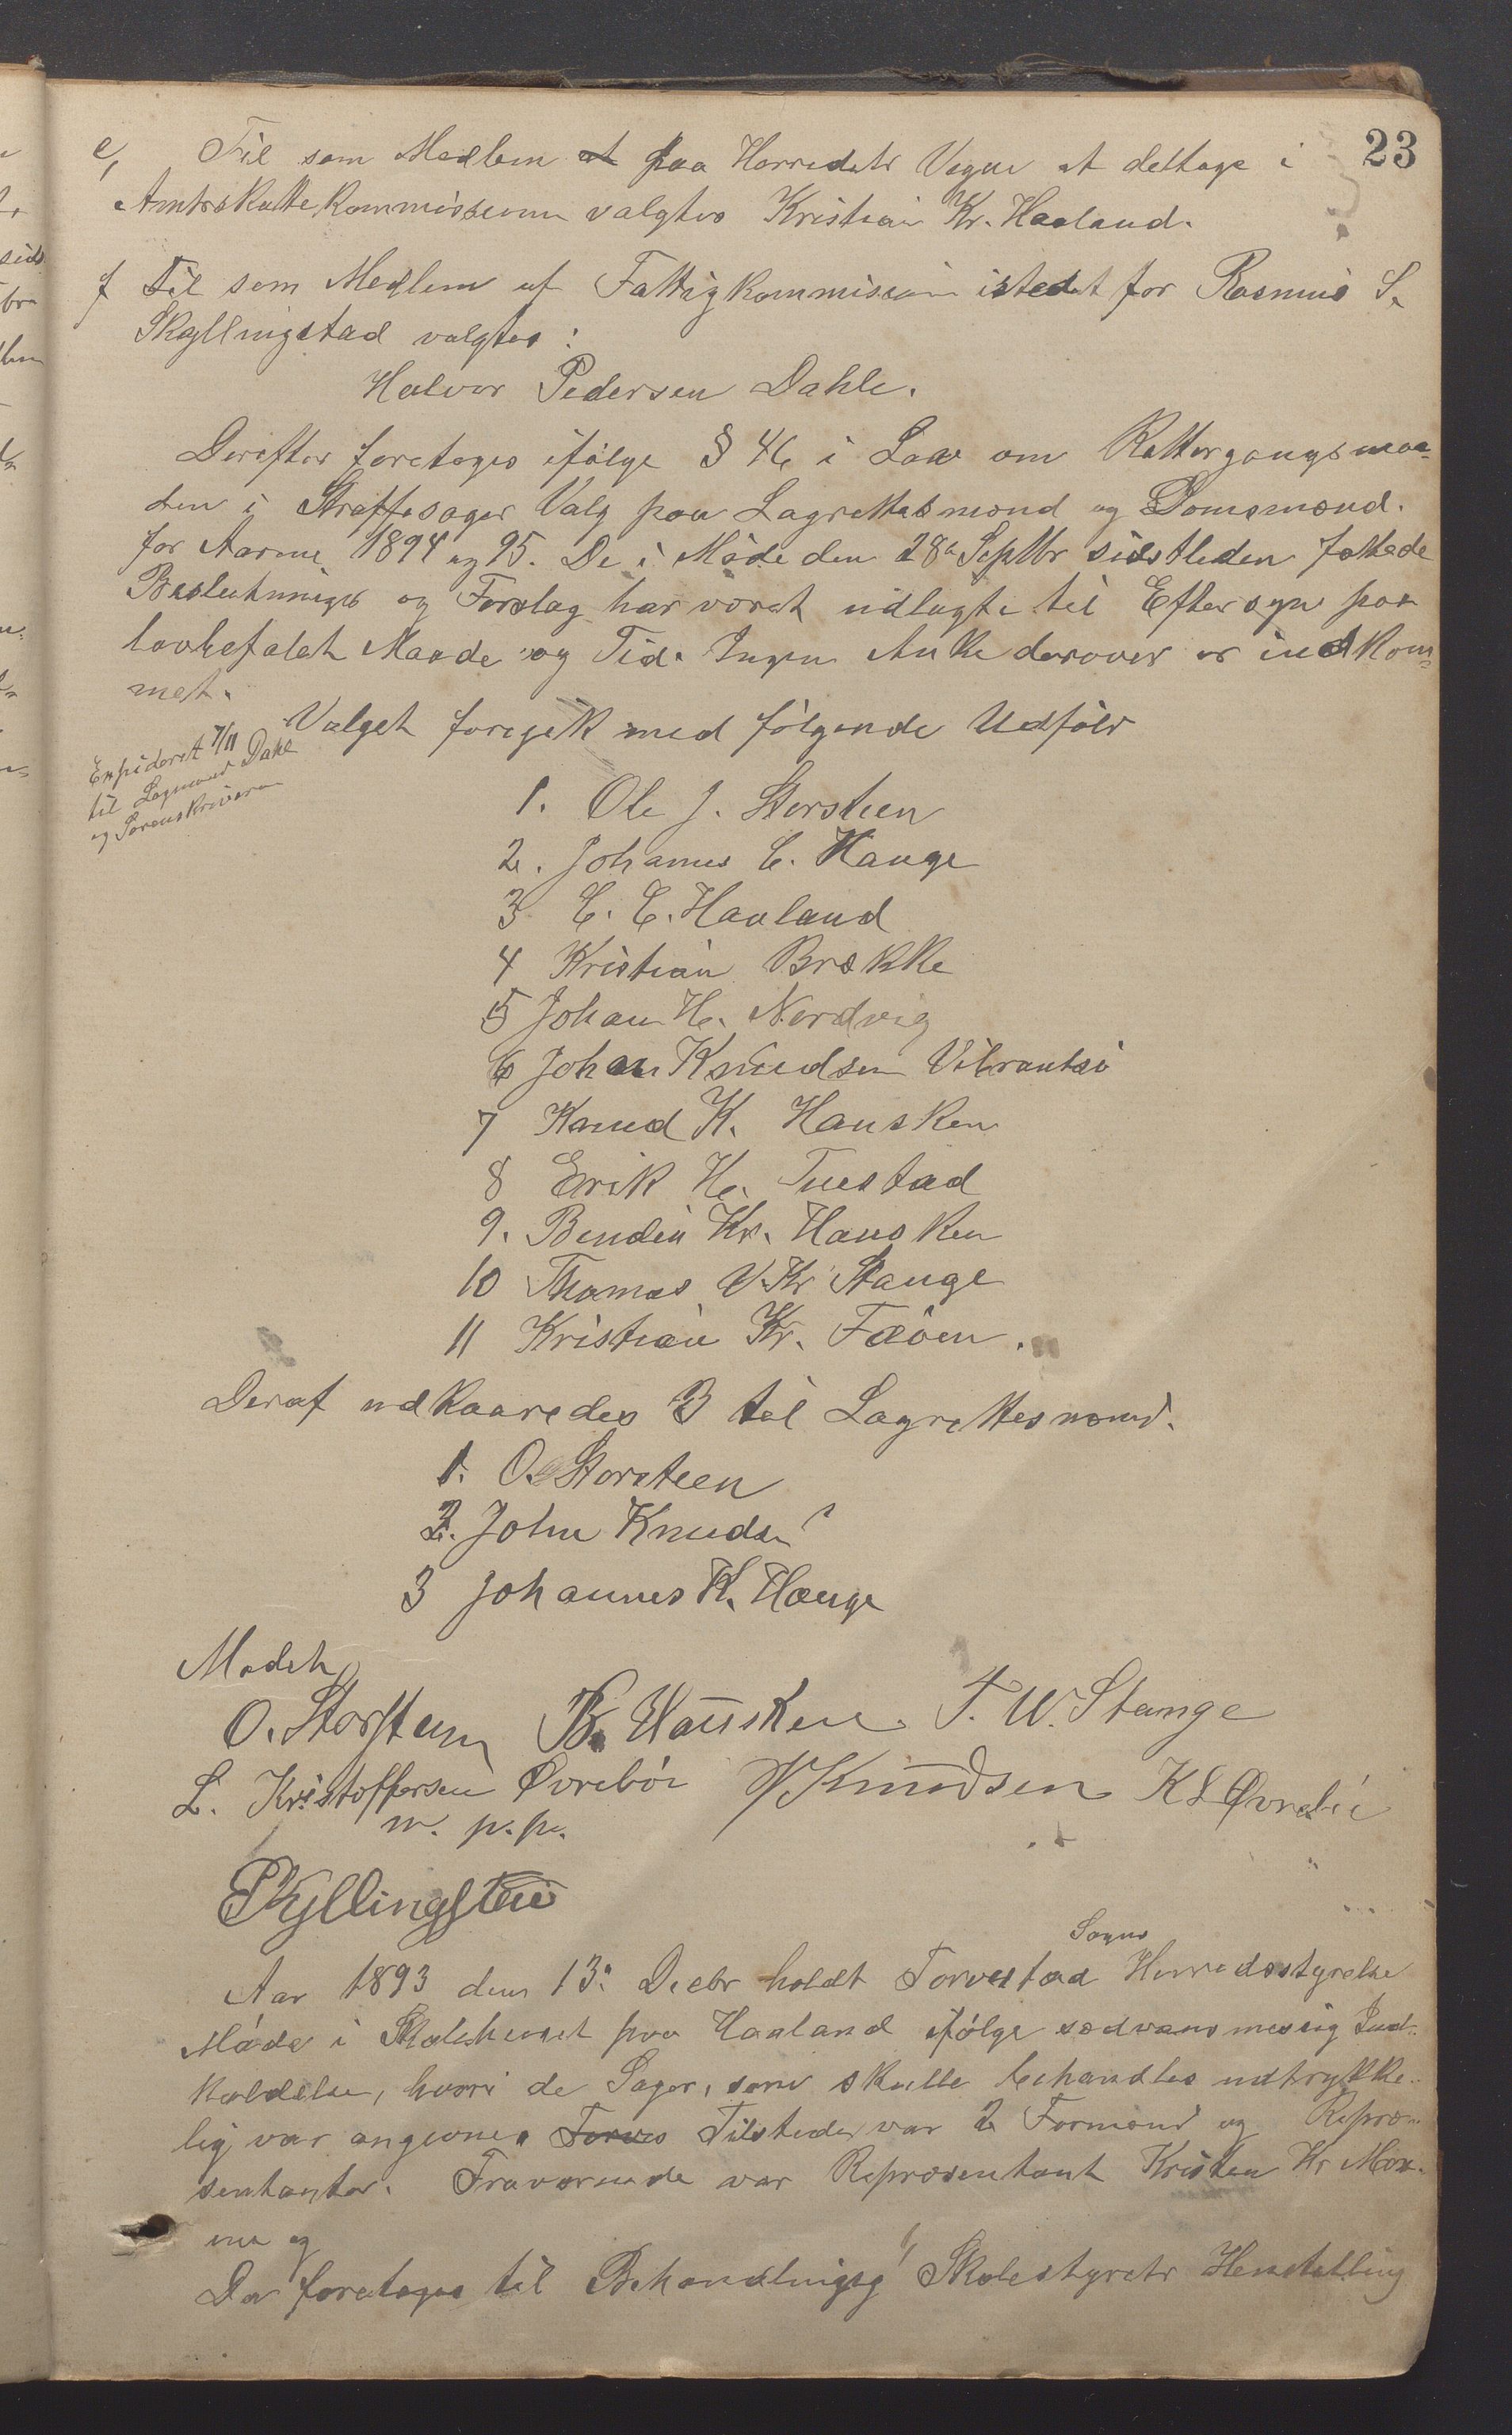 23
e, Til som Medlem at paa Herredets Vegne at deltage i
Amtsskattekommissionen valgtes Kristian Kr. Haaland.
f Til som Medlem af Fattigkommission istedet for Rasmus S.
Skyllingstad valgtes:
Halvor Pedersen Dahle.
Derefter foretoges ifølge § 46 i Lov om Rettergangsmaa-
den i Straffesager Valg paa Lagrettesmænd og Domsmænd.
for Aarene 1894 og 95. De i Møde den 28de Septbr sidstleden fattede
Beslutninger og Forslag har været udlagte til Eftersyn paa
lovbefalet Maade og Tid. Ingen Anke derover er indkom-
met.
Valget foregik med følgende Udfald
Expideret 7/11
til Lagmand Dahl
og Sorenskriveren
1. Ole J. Storsteen
2. Johannes C. Hauge
3 C. C. Haaland
4 Kristian Brekke
5 Johan H. Nordvig
6 Johan Knudsen Vibrandsø
7 Knud K. Hausken
8 Erik H. Tuestad
9. Bendix Kr. Hausken
10 Thomas V. Kr Stange
11 Kristian Kr. Fæøen.
Deraf udkaaredes 3 til Lagrettesmænd.
1. O. Storsteen
2. John Knudsen
3 Johannes K. Hauge
Mødet
O. Storsteen B. Hausken. T. W. Stange
L. Kristoffersen Øvrebø J Knudsen K L Øvrebø
m. p. p.
Aar 1893 den 13. Decbr holdt Torvestad Sogns Herredsstyrelse
Møde i Skolehuset paa Haaland ifølge sædvansmessig Ind-
kaldelse, hvori de Sager, som skulle behandles udtrykke-
lig var angivne. Torves Tilstede var 2 Formænd og Repræ-
sentanter. Fraværende var Repræsentant Kristen Kr
og
Da foretoges til Behandling Skolestyrets Henstilling